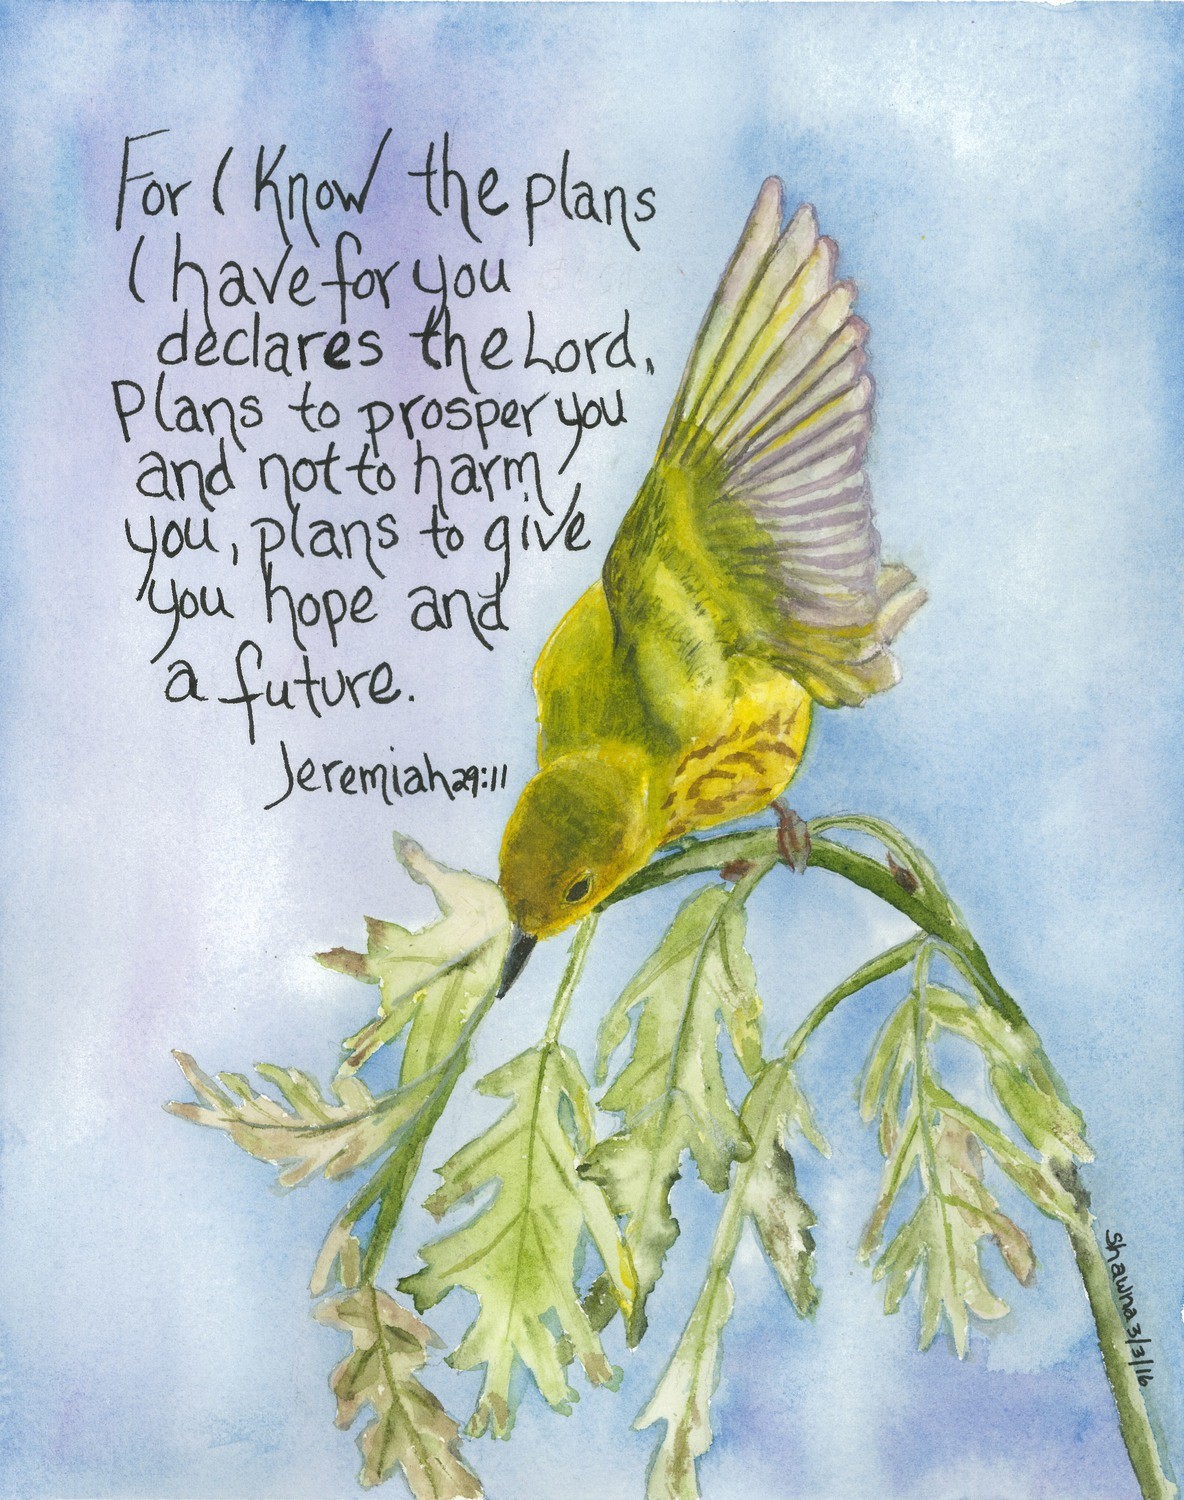 For I Know the plans
I have for you
declares the Lord,
Plans to prosper you
and not to harm
you, plans to give
you hope and
a future.
Jeremiah 29:11
Shawna 3/3/16